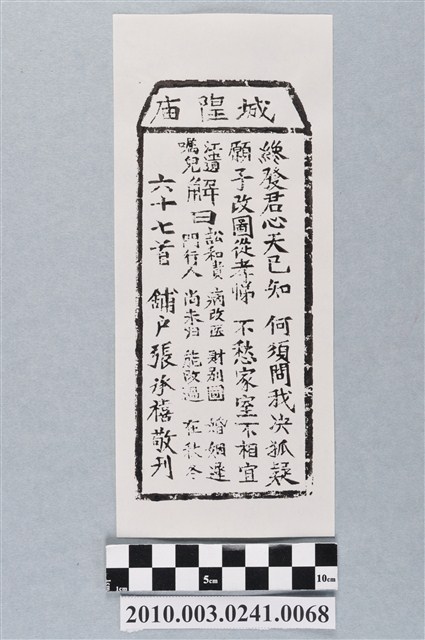 城隍庙
終發君心天已知 何須問我决狐疑
願子改圖從孝悌 不愁家室不相宜
江遺
囑兒
解曰
訟和貴 病改医 財別圖 婚姻遲
問行人 尚未归 能改過 在秋冬
六十七首 舖戶張承禧敬刊
1cm 5cm 10cm
2010.003.0241.0068